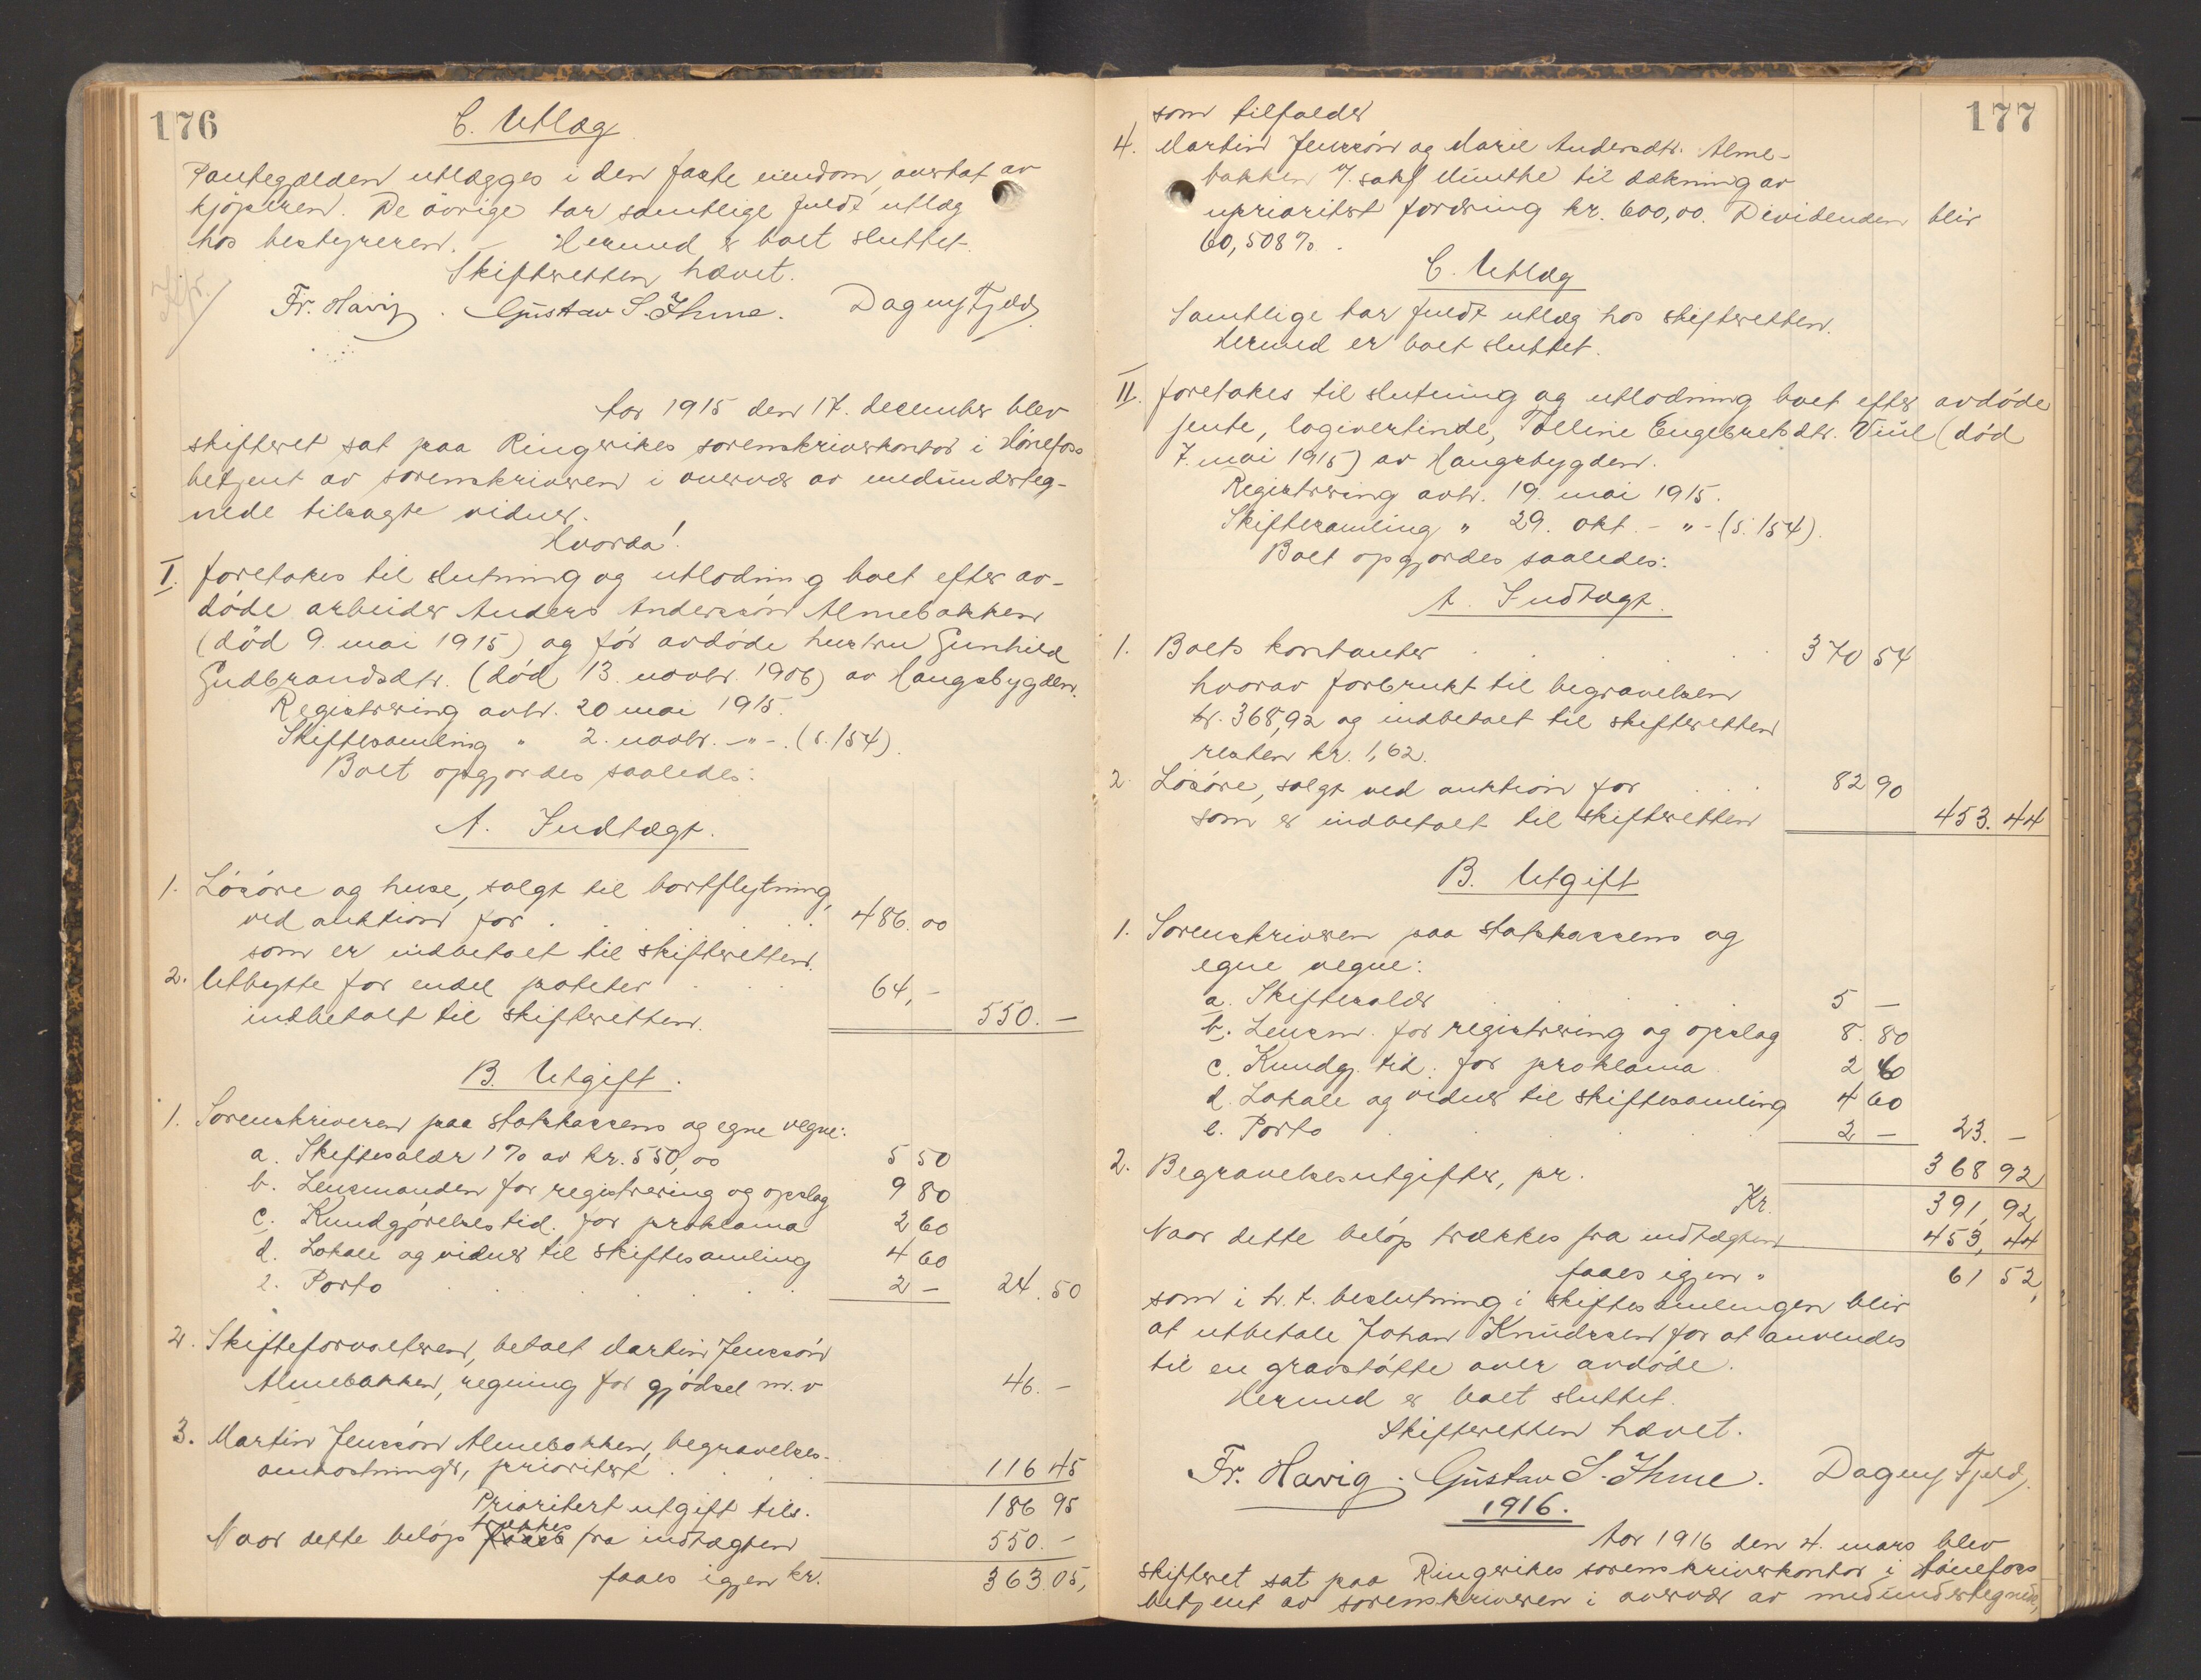 176
C. Utlæg
Pantegjælden utlægges i den faste eiendom, overtat av
kjøperen. De øvrige har samtlige fuldt utlæg
hos bestyreren. – Hermed er boet sluttet.
Skifteretten hævet.
Fr. Havig. Gustav S. Ihme. Dagny Fjeld
Aar 1915 den 17. december blev
skifteret sat paa Ringerikes sorenskriverkontor i Hönefoss
betjent av sorenskriveren i overvær av medunderteg-
nede tilsagte vidner.
Hvorda!
I. foretokes til slutning og utlodning boet efter av-
döde arbeider Anders Anderssön Almebakken
(död 9. mai 1915) og för avdöde hustru Gunhild
Gudbrandsdtr. (död 13. novbr. 1906) av Haugsbygden.
Registrering avh. 20 mai 1915.
Skiftesamling " 2. novbr. -"-. (s. 154).
Boet opgjordes saaledes:
A. Indtægt.
1. Lösöre og huse, solgt til bortflytning,
ved auktion for . . . 486. 00
som er indbetalt til skifteretten.
2. Utbytte for endel poteter . . . 64, -
indbetalt til skifteretten. 550. -
B. Utgift.
1. Sorenskriveren paa statskassens og egne vegne:
a. Skiftesalær 1 % av kr. 550,00 5 50
b. Lensmanden for registrering og opslag 9 80
c. Kundgjörelsestid. for proklama 2 60
d. Lokale og vidner til skiftesamling 4 60
e. Porto . . . 2 - 24. 50
2. Skifteforvalteren, betalt Martin Jenssön
Almebakken, regning for gjödsel m. v 46. -
3. Martin Jenssön Almebakken, begravelses-
omkostninger, prioritert . . . 116 45
Prioritert utgift tils. 186 95
Naar dette beløp trækkes fra indtægten 550. -
faaes igjen kr. 363. 05,
177
som tilfalder
4. Martin Jenssön og Marie Andersdtr. Alme-
bakken v/. sakf Münthe til dækning av
uprioritert fordring kr. 600,00. Dividenden blir
60,508 %.
C. Utlæg
Samtlige har fuldt utlæg hos skifteretten.
Hermed er boet sluttet.
II. foretokes til slutning og utlodning boet efter avdöde
jente, logivertinde, Tolline Engebretsdtr. Viul (död
7. mai 1915) av Haugsbygden.
Registrering avh. 19. mai 1915.
Skiftesamling " 29. okt. - " - (s. 154).
Boet opgjordes saaledes:
A. Indtægt.
1. Boets kontanter . . . 370 54
hvorav forbrukt til begravelsen
kr. 368,92 og indbetalt til skifteretten
resten kr. 1,62.
2. Lösöre, solgt ved auktion for . . . 82 90
som er indbetalt til skifteretten 453. 44
B. Utgift
1. Sorenskriveren paa statskassens og
egne vegne:
a. Skiftesalær . . . 5 -
b. Lensm. for registrering og opslag 8. 80
c. Kundgj. tid. for proklama 2 60
d. Lokale og vidner til skiftesamling 4 60
e. Porto . . . 2 - 23. -
2. Begravelsesutgifter, pr. 368 92
Kr. 391, 92
Naar dette beløp trækkes fra indtægten 453, 44
faaes igjen " 61 52,
som i h. t. beslutning i skiftesamlingen blir
at utbetale Johan Knudssen for at anvendes
til en gravstøtte over avdöde.
Hermed er boet sluttet.
Skifteretten hævet.
Fr. Havig. Gustav S. Ihme. Dagny Fjeld
1916.
Aar 1916 den 4. mars blev
skifteret sat paa Ringerikes sorenskriverkontor i Hönefoss
betjent av sorenskriveren i overvær av medundertegnede,